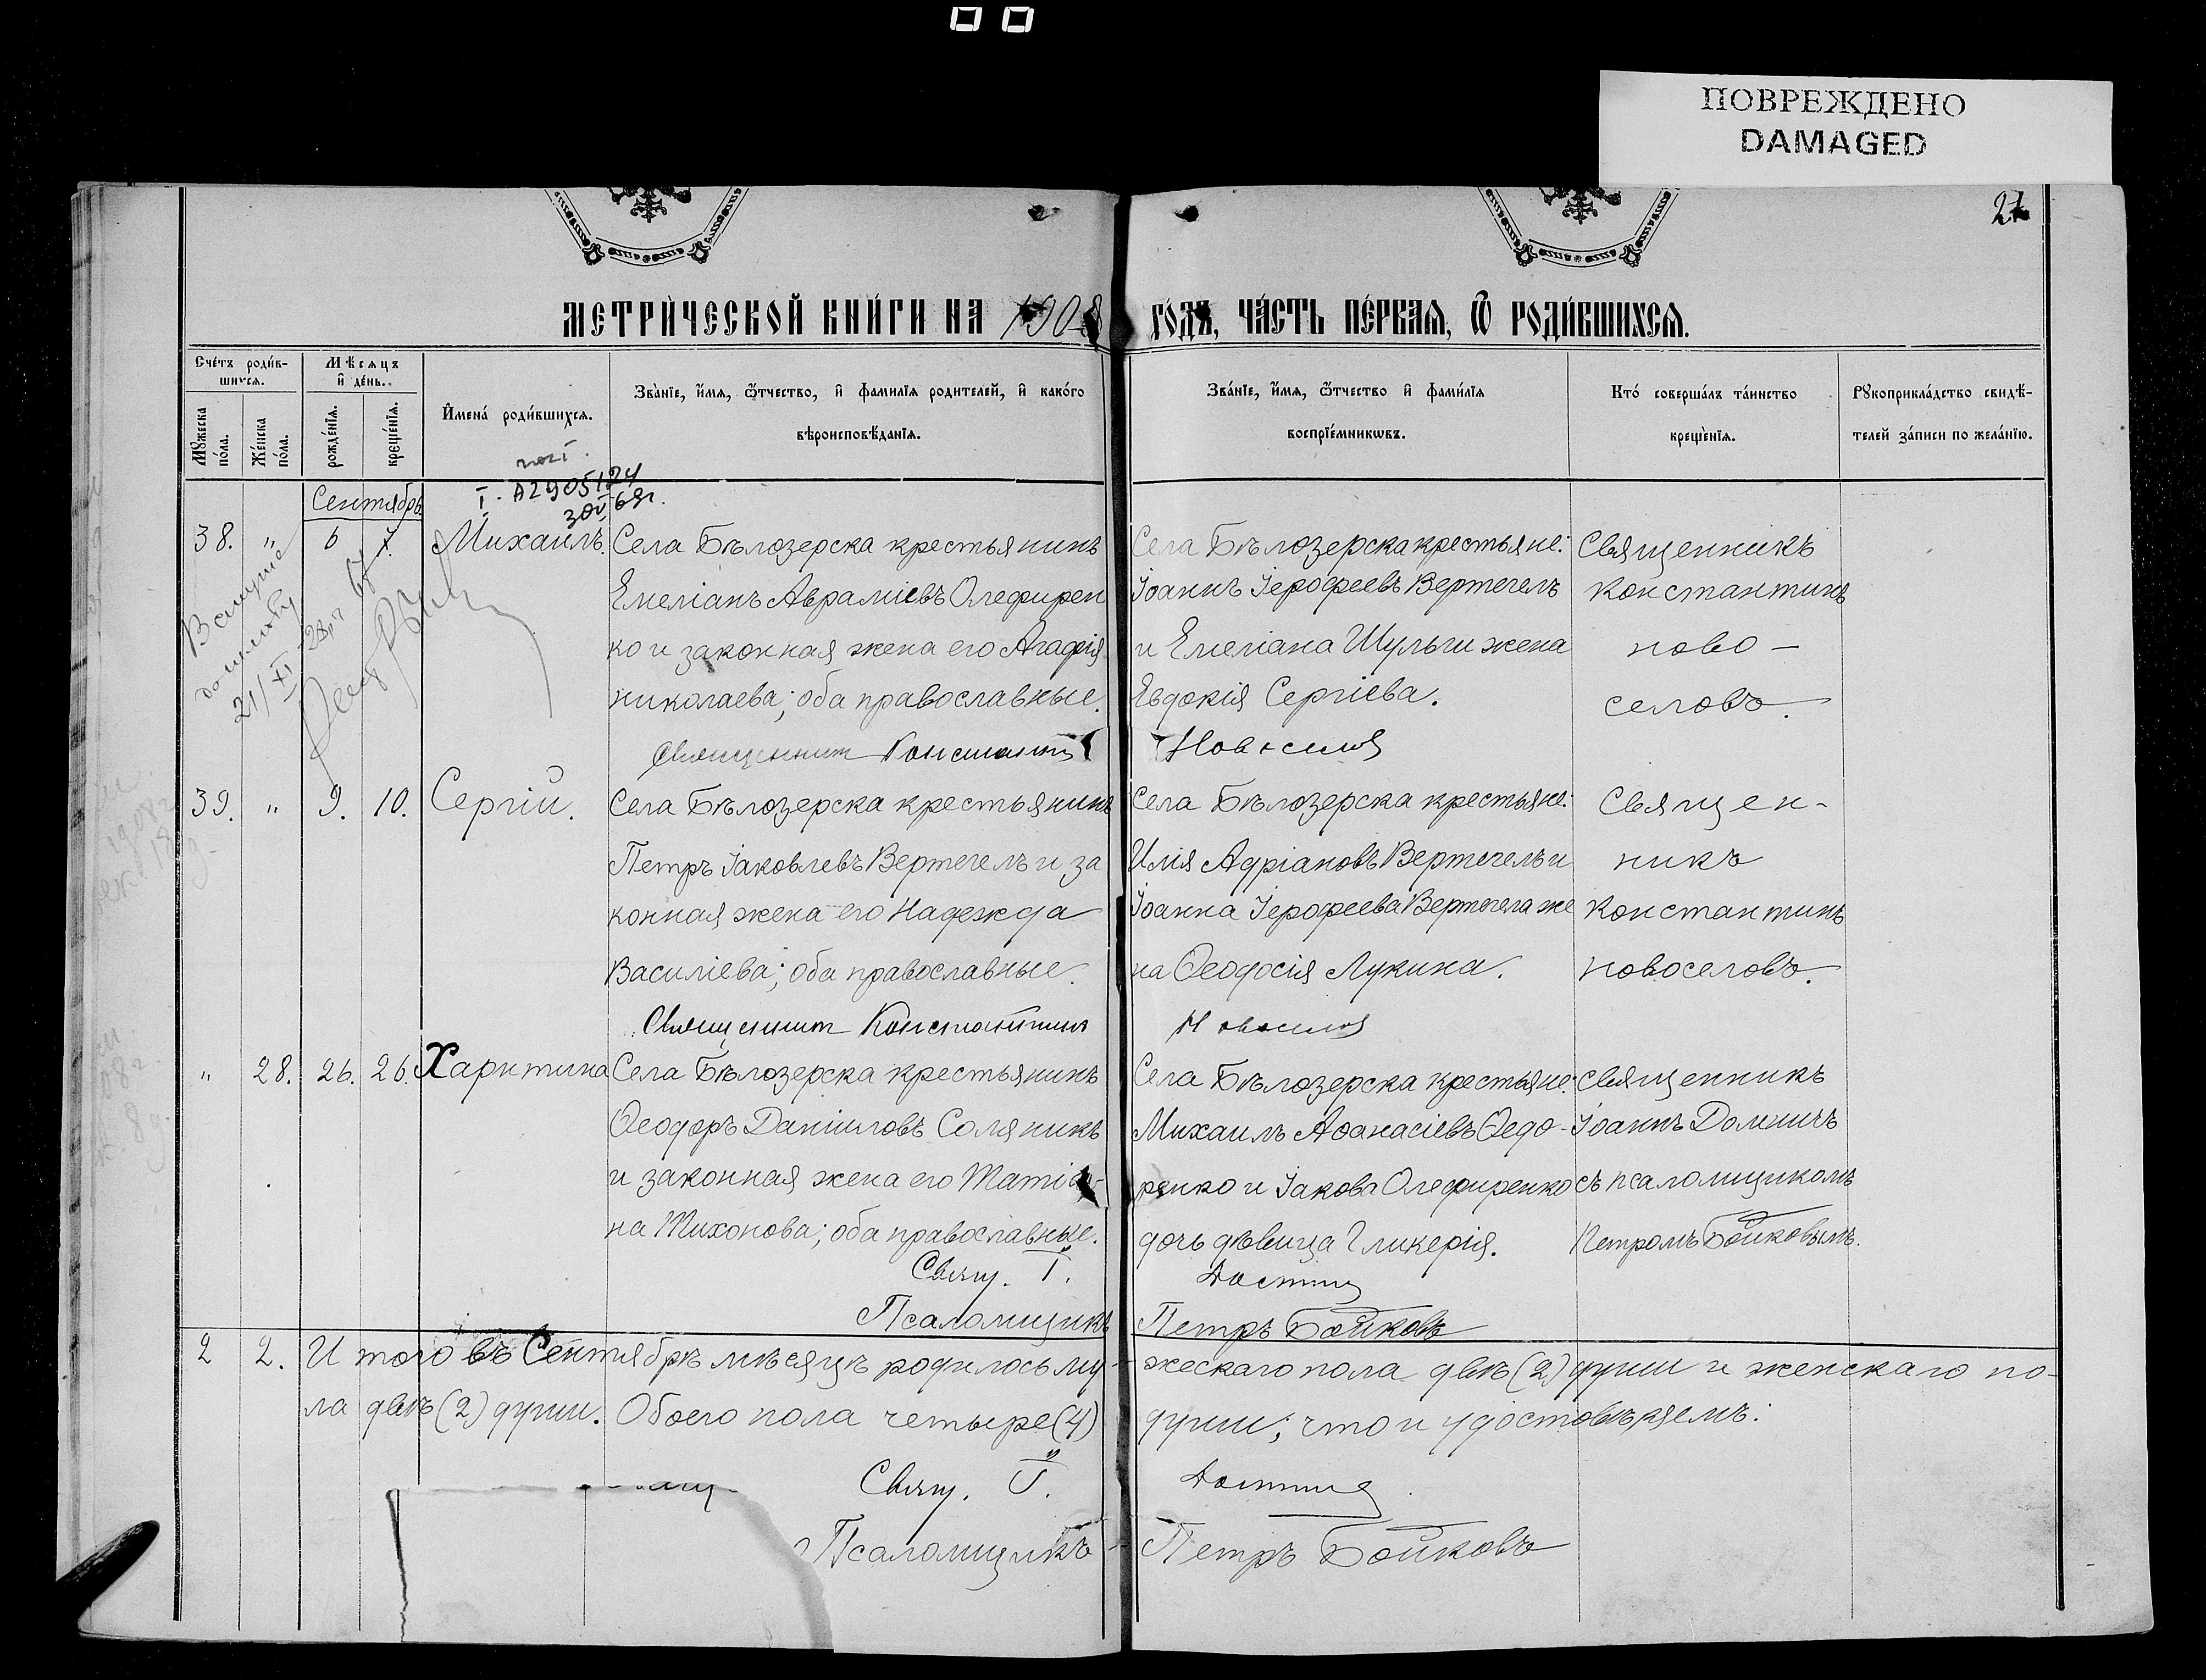 ПОВРЕЖДЕНО
DAMAGED
27
МЕТРИ́ЧЕСКОЙ КНИ́ГИ НА 1908 ГО́ДЪ, ЧА́СТЬ ПЕ́РВАѦ, Ѿ РОДИ́ВШИХСѦ.
Сче́тъ роди́в-
шихсѧ.
Мѣ́сѧцъ
и҆ де́нь.
Мꙋ́жеска
по́ла.
Же́нска
по́ла.
рожде́нїѧ.
креще́нїѧ.
И҆мена́ роди́вшихсѧ.
Зва́нїе, и҆́мѧ, ѻ҆́тчество, и҆ фами́лїѧ роди́телей, и҆ како́гѡ
вѣроисповѣ́данїѧ.
Зва́нїе, и҆́мѧ, ѻ҆́тчество и҆ фами́лїѧ
воспрїе́мникѡвъ.
Кто́ соверша́лъ та́инство
креще́нїѧ.
Рꙋкоприкла́дство свидѣ́-
телей за́писи по жела́нїю.
I - А2905124
30 V 69г.
Сентябрь
38. " 6 7. Михаилъ.
Села Бѣлозерска крестьянинъ
Емеліанъ Авраміевъ Олефирен
ко и законная жена его Агафія
Николаева; оба православные.
Священникъ Константинъ
Села Бѣлозерска крестьяне:
Іоаннъ Іерофеевъ Вертегелъ
и Емеліана Шульги жена
Евдокія Сергіева.
Новоселов
Священникъ
Константинъ
Ново-
селовъ.
39. " 9. 10. Сергій.
Села Бѣлозерска крестьянинъ
Петръ Іаковлевъ Вертегелъ и за
конная жена его Надежда
Василіева; оба православные.
Священникъ Константинъ
Села Бѣлозерска крестьяне:
Илія Адріановъ Вертегелъ и
Іоанна Іерофеева Вертегела же
на Ѳеодосія Лукина.
Новоселов
Священ-
никъ
Константинъ
Новоселовъ.
" 28. 26. 26. Харитина
Села Бѣлозерска крестьянинъ
Ѳеодоръ Даніиловъ Соляникъ
и законная жена его Татіа-
на Тихонова; оба православные.
Свящ. І.
Псаломщикъ
Села Бѣлозерска крестьяне:
Михаилъ Аѳанасіевъ Ѳедо-
ренко и Іакова Олефиренко
дочь дѣвица Гликерія.
Петръ Бойковъ
Священникъ
Іоаннъ
съ псаломщикомъ
Петромъ Бойковымъ.
2 2. Итого въ Сентябрѣ мѣсяцѣ родилось му-жескаго пола двѣ (2) души и женскаго по-
ла двѣ (2) души. Обоего пола четыре (4) души; что и удостовѣряемъ:
Свящ. І.
Псаломщикъ Петръ Бойковъ